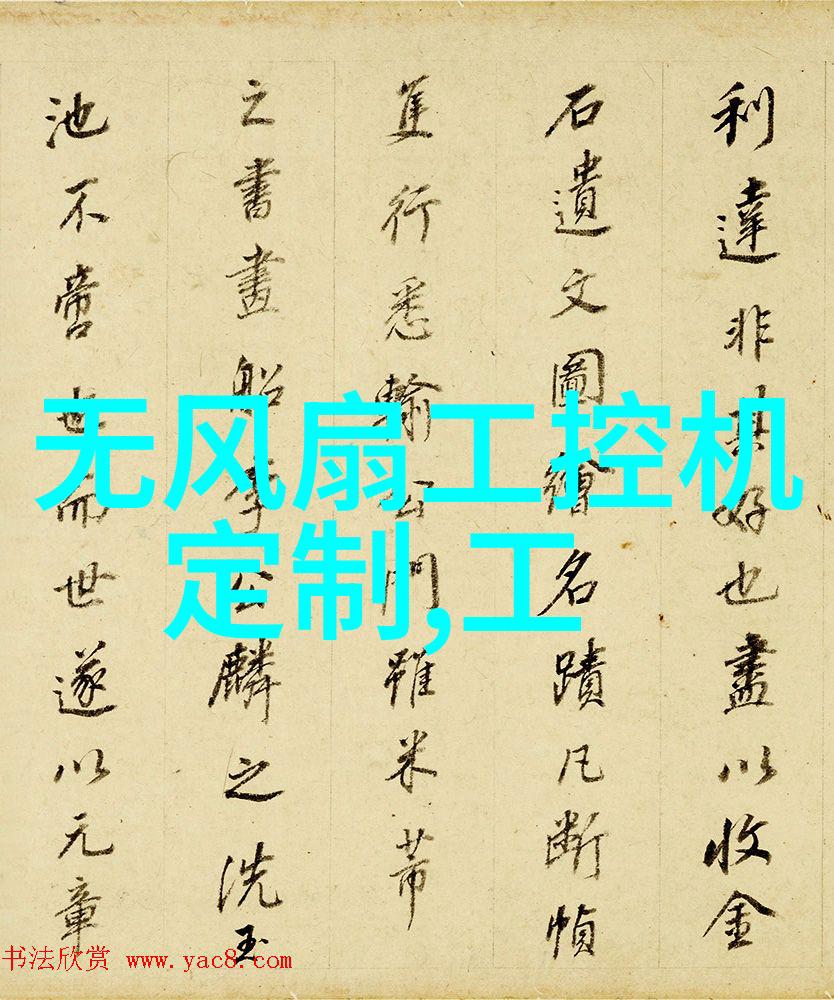 利達非其好也盡以收金
石遺文圖繪名蹟凡断幀
隻行悉輸公門雖米芾
之書畫船李公麟之洗玉
池不啻也而世遂以元章
无风扇工控机
定制,工
书法欣赏 www.yac8.com